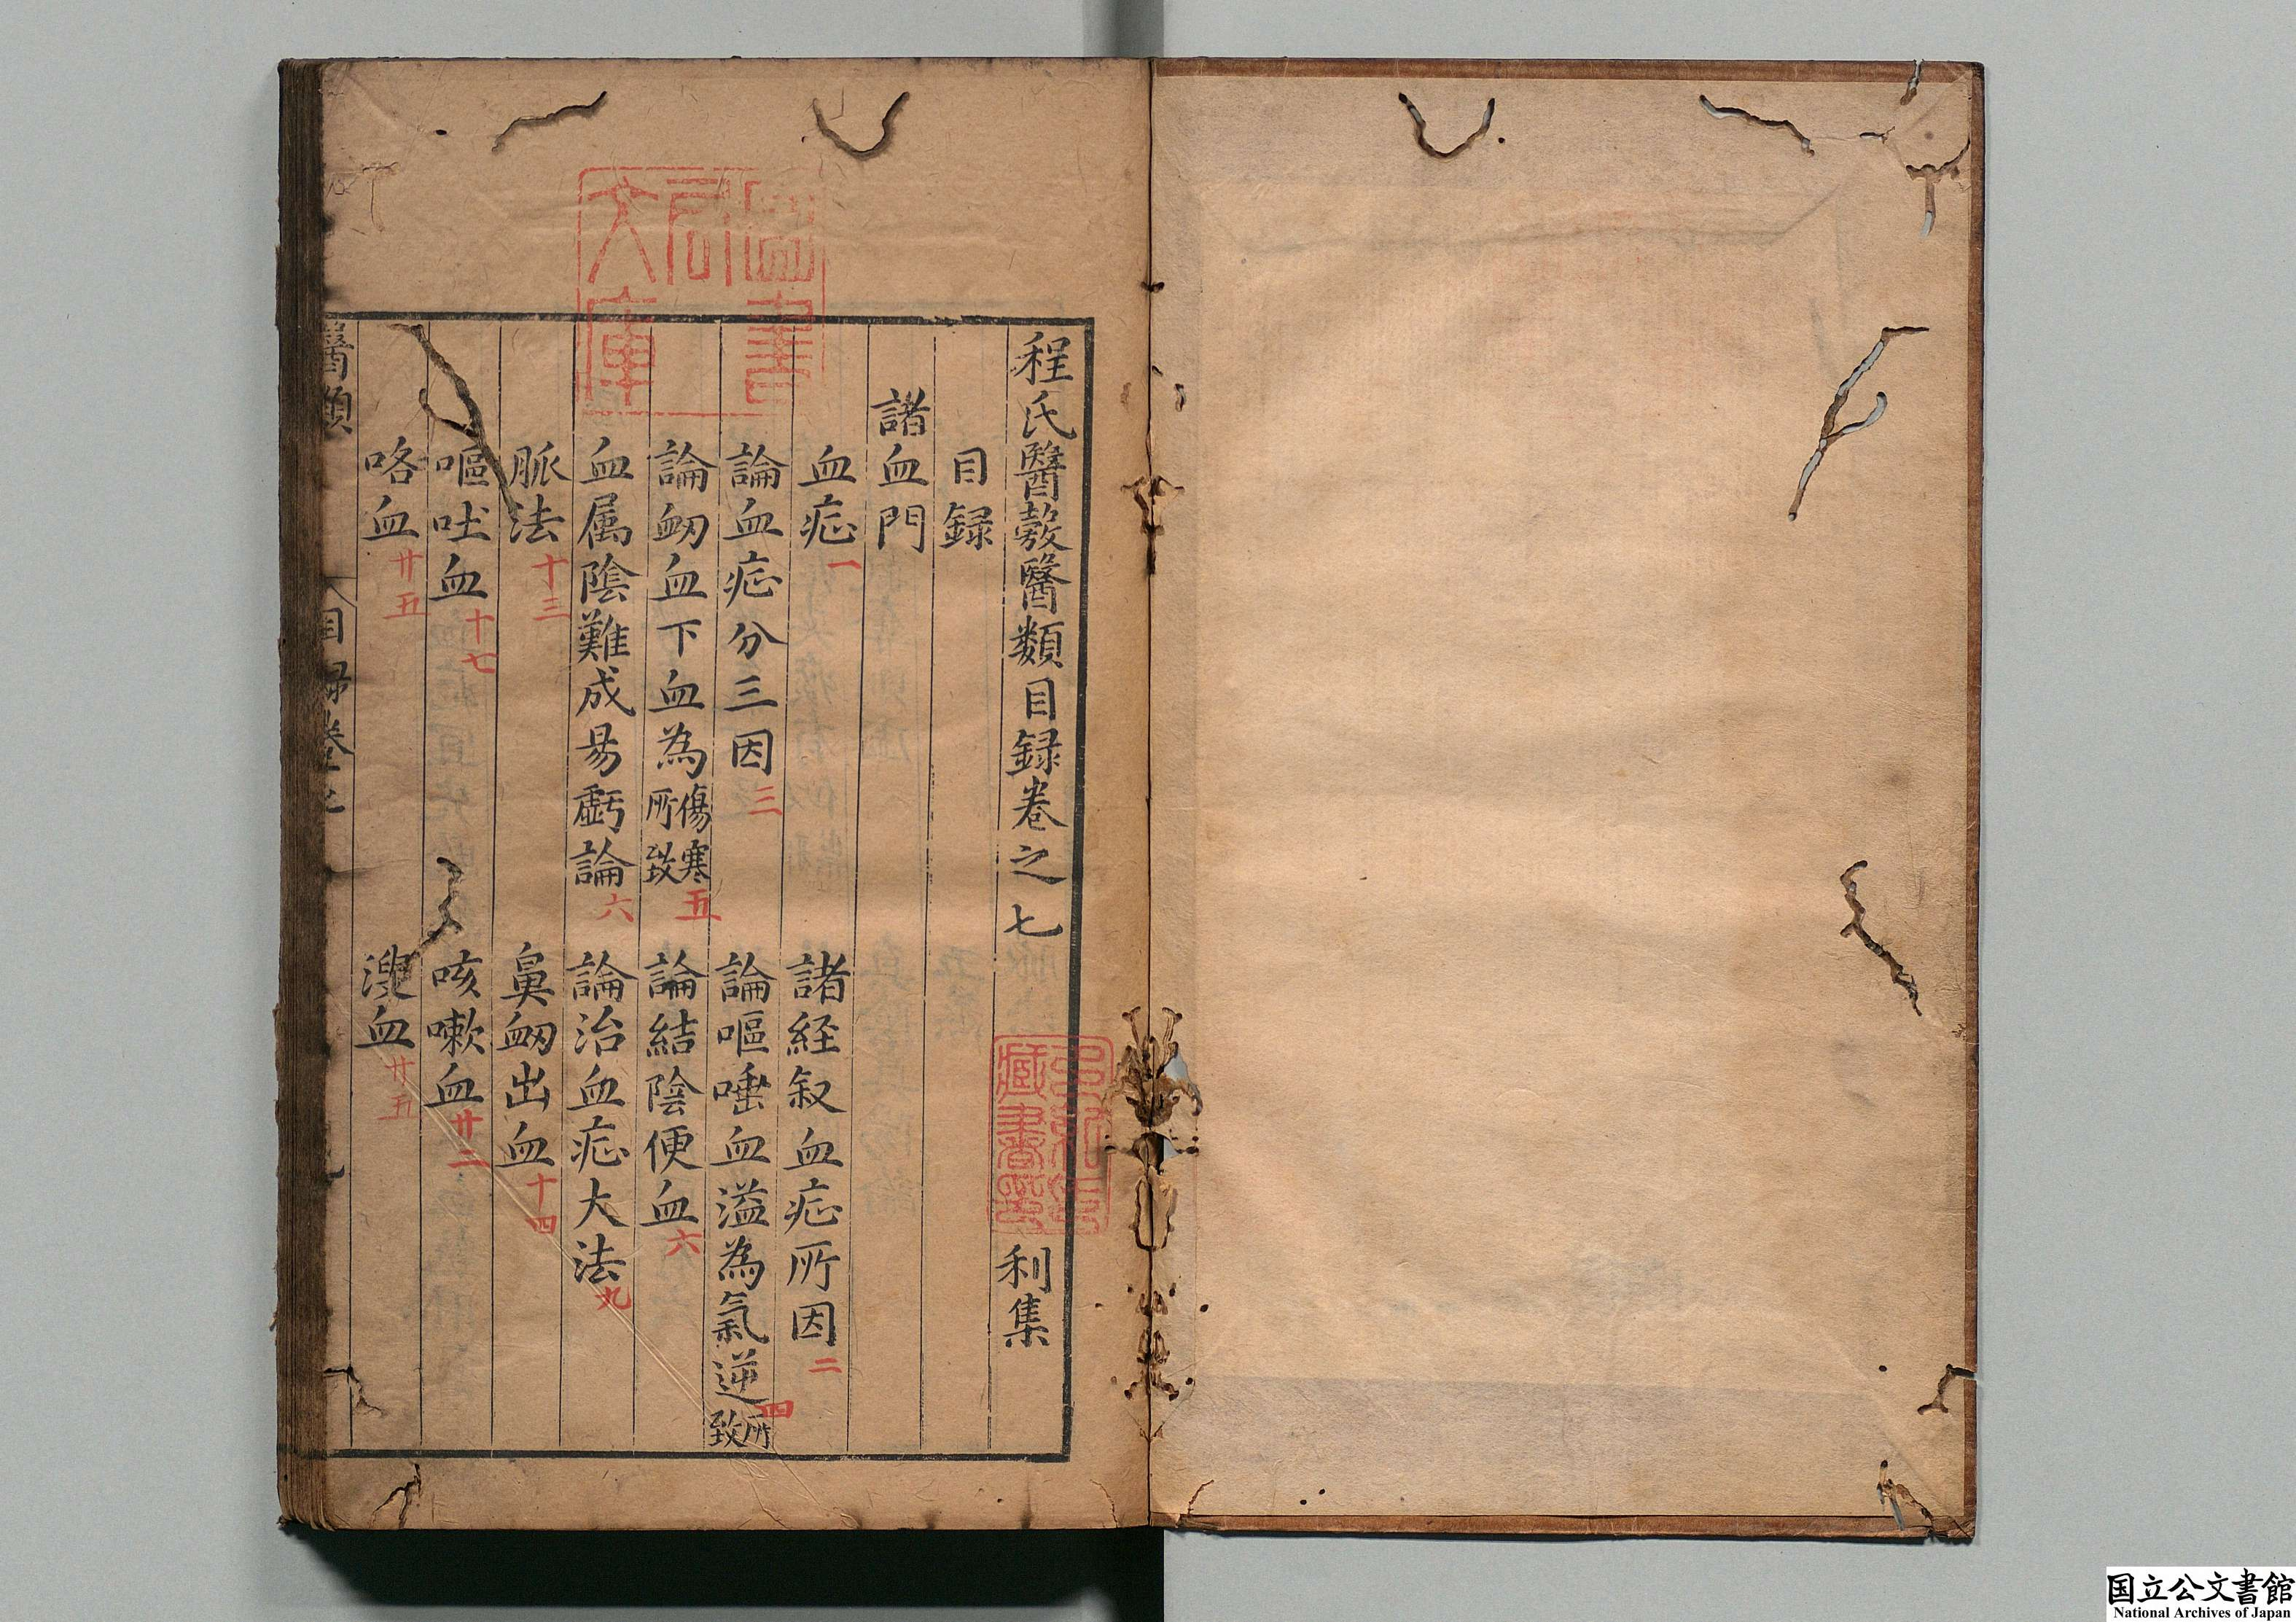 程氏醫彀醫類目録卷之七 利集
目録
諸血門
血症一 諸経叙血症所因二
論血症分三因三 論嘔唾血溢為氣逆所致四
論衂血下血為傷寒所致五 論結陰便血六
血属陰難成易虧論六 論治血症大法九
脈法十三 鼻衂出血十四
嘔吐血十七 咳嗽血廿二
咯血廿五 溲血廿五
醫類 目録卷之 
圖書局文庫
藏書
国立公文書館
National Archives of Japan